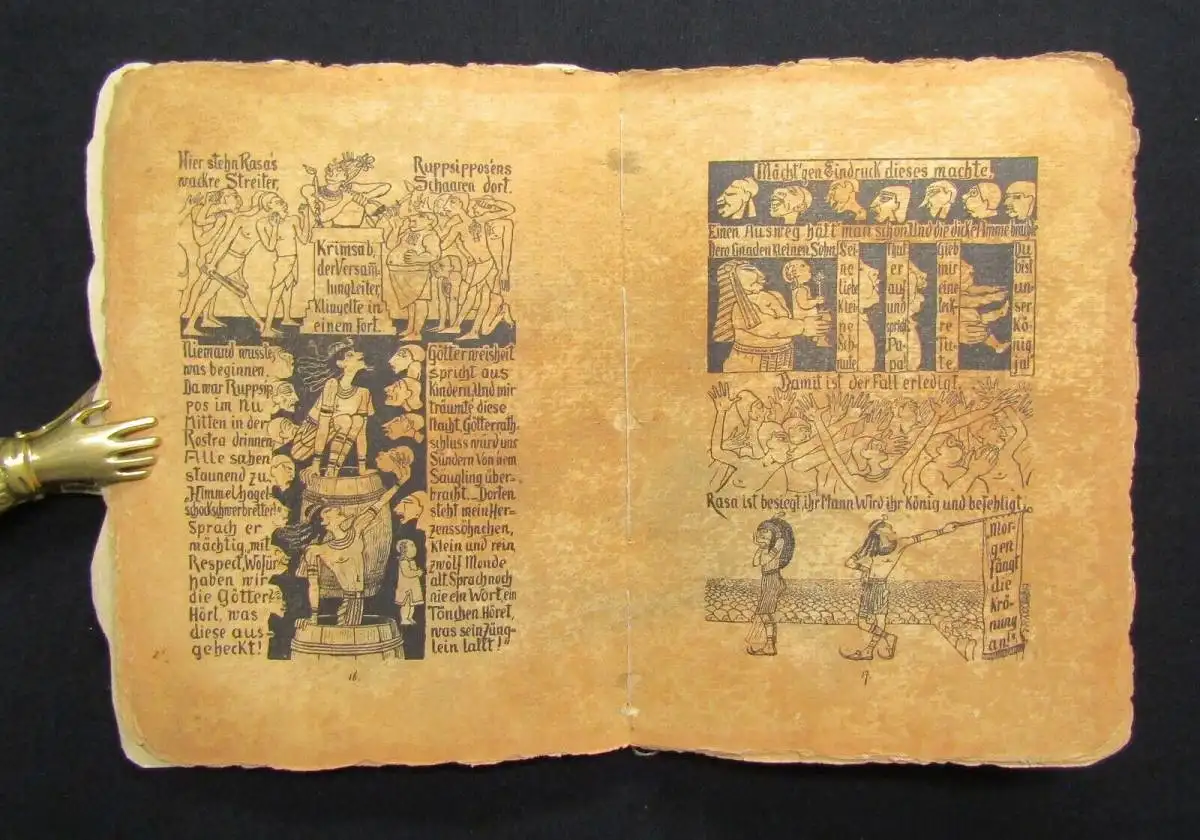 Hier stehn Rasa's
wackre Streiter,
Ruppsipposens
Schaaren dort.
Krimsab,
der Versam-
lung Leiter
Klingelte in
einem fort.
Niemand wusste,
was beginnen.
Da war Ruppsip
pos im Nu
Mitten in der
Rostra drinnen
Alle sahen
staunend zu.
„Himmelhagel-
schockschwerbretter!“
Sprach er
mächtig, mit
Respect, Wofür
haben wir
die Götter?
Hört, was
diese aus-
geheckt!
Götterweisheit
spricht aus
Kindern. Und mir
träumte diese
Nacht, Götterrath-
schluss würd uns
Sündern Von nem
Säugling über-
bracht._ Dorten
steht mein Her-
zenssöhnchen,
Klein und rein,
zwölf Monde
alt, Sprach noch
nie ein Wort, ein
Tönchen Höret,
was sein Züng-
lein lallt!“
16.
Mächt'gen Eindruck dieses machte,
Einen Ausweg hätt' man schon. Und die dicke Amme brachte
Dero Gnaden kleinen Sohn.
Sei-
ne
liebe
klei-
ne
Schnute
That
er
auf
und
sprich:
Pa-
pa!
Gieb
mir
eine
leck-
re
Tu-
te,
Du
bist
un-
ser
Kö-
nig
ja!
Damit ist der Fall erledigt.
Rasa ist besiegt, ihr Mann Wird ihr König und befehligt,
„Mor-
gen
fängt
die
Krö-
nung
an!“
17.